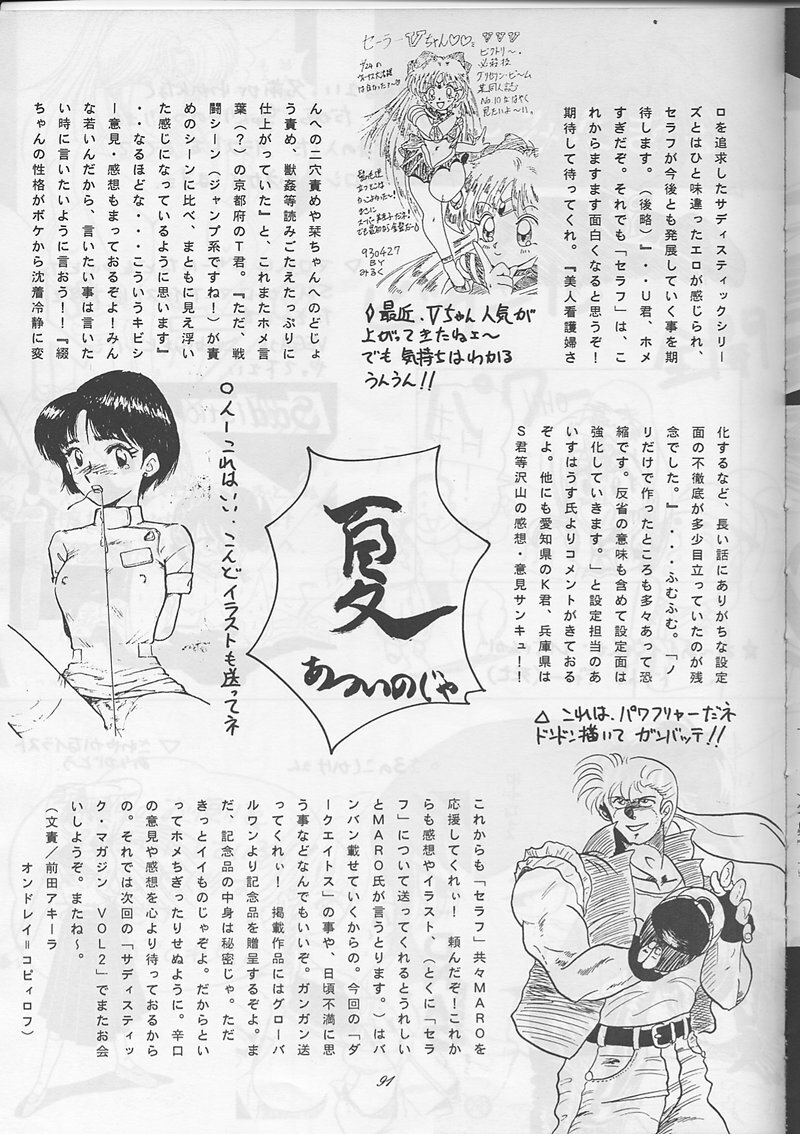 ロを追求したサディスティックシリー
ズとはひと味違ったエロが感じられ、
セラフが今後とも発展していく事を期
待します。（後略）』・・U君、ホメ
すぎだぞ。それでも「セラフ」は、こ
れからますます面白くなると思うぞ！
期待して待ってくれ。『美人看護婦さ
セーラーVちゃん♡♡
ビクトリー・
必殺技
930427
BY
みるく
◊最近、Vちゃん人気が
上がってきたねェ〜
でも気持ちはわかる
うんうん!!
んへの二穴責めや栞ちゃんへのどじょ
う責め、獣姦等読みごたえたっぷりに
仕上がっていた』と、これまたホメ言
葉（？）の京都府のT君。『ただ、戦
闘シーン（ジャンプ系ですね！）が責
めのシーンに比べ、まともに見え浮い
た感じになっているように思います』
・・なるほどな・・・こういうキビシ
ー意見・感想もまっておるぞよ！みん
な若いんだから、言いたい事は言いた
い時に言いたいように言おう！！『綴
ちゃんの性格がボケから沈着冷静に変
化するなど、長い話にありがちな設定
面の不徹底が多少目立っていたのが残
念でした。』・・・ふむふむ。「ノ
リだけで作ったところも多々あって恐
縮です。反省の意味も含めて設定面は
強化していきます。」と設定担当のあ
いすはうす氏よりコメントがきておる
ぞよ。他にも愛知県のK君、兵庫県は
S君等沢山の感想・意見サンキュ！！
夏
あついのじゃ
○人ーこれはいい、こんどイラストも送ってネ
△これは、パワフリャーだネ
ドンドン描いてガンバッテ!!
これからも「セラフ」共々MAROを
応援してくれぃ！頼んだぞ！これか
らも感想やイラスト、（とくに「セラ
フ」について送ってくれるとうれしい
とMARO氏が言うとります。）はバ
ンバン載せていくからの。今回の「ダ
ークエイトス」の事や、日頃不満に思
う事などなんでもいいぞ。ガンガン送
ってくれぃ！掲載作品にはグローバ
ルワンより記念品を贈呈するぞよ。ま
だ、記念品の中身は秘密じゃ。ただ
きっとイイものじゃぞよ。だからとい
ってホメちぎったりせぬように。辛口
の意見や感想を心より待っておるから
の。それでは次回の「サディスティッ
ク・マガジン VOL2」でまたお会
いしようぞ。またね〜。
（文責／前田アキーラ
オンドレイ＝コピィロフ）
91